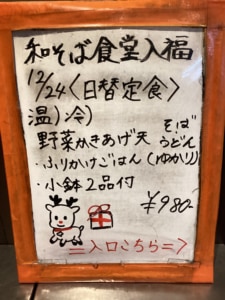 和そば食堂入福
12/24〈日替定食〉
温)冷)
野菜かきあげ天 そば うどん
・ふりかけごはん(ゆかり)
・小鉢2品付
¥980-
=入口こちら=>